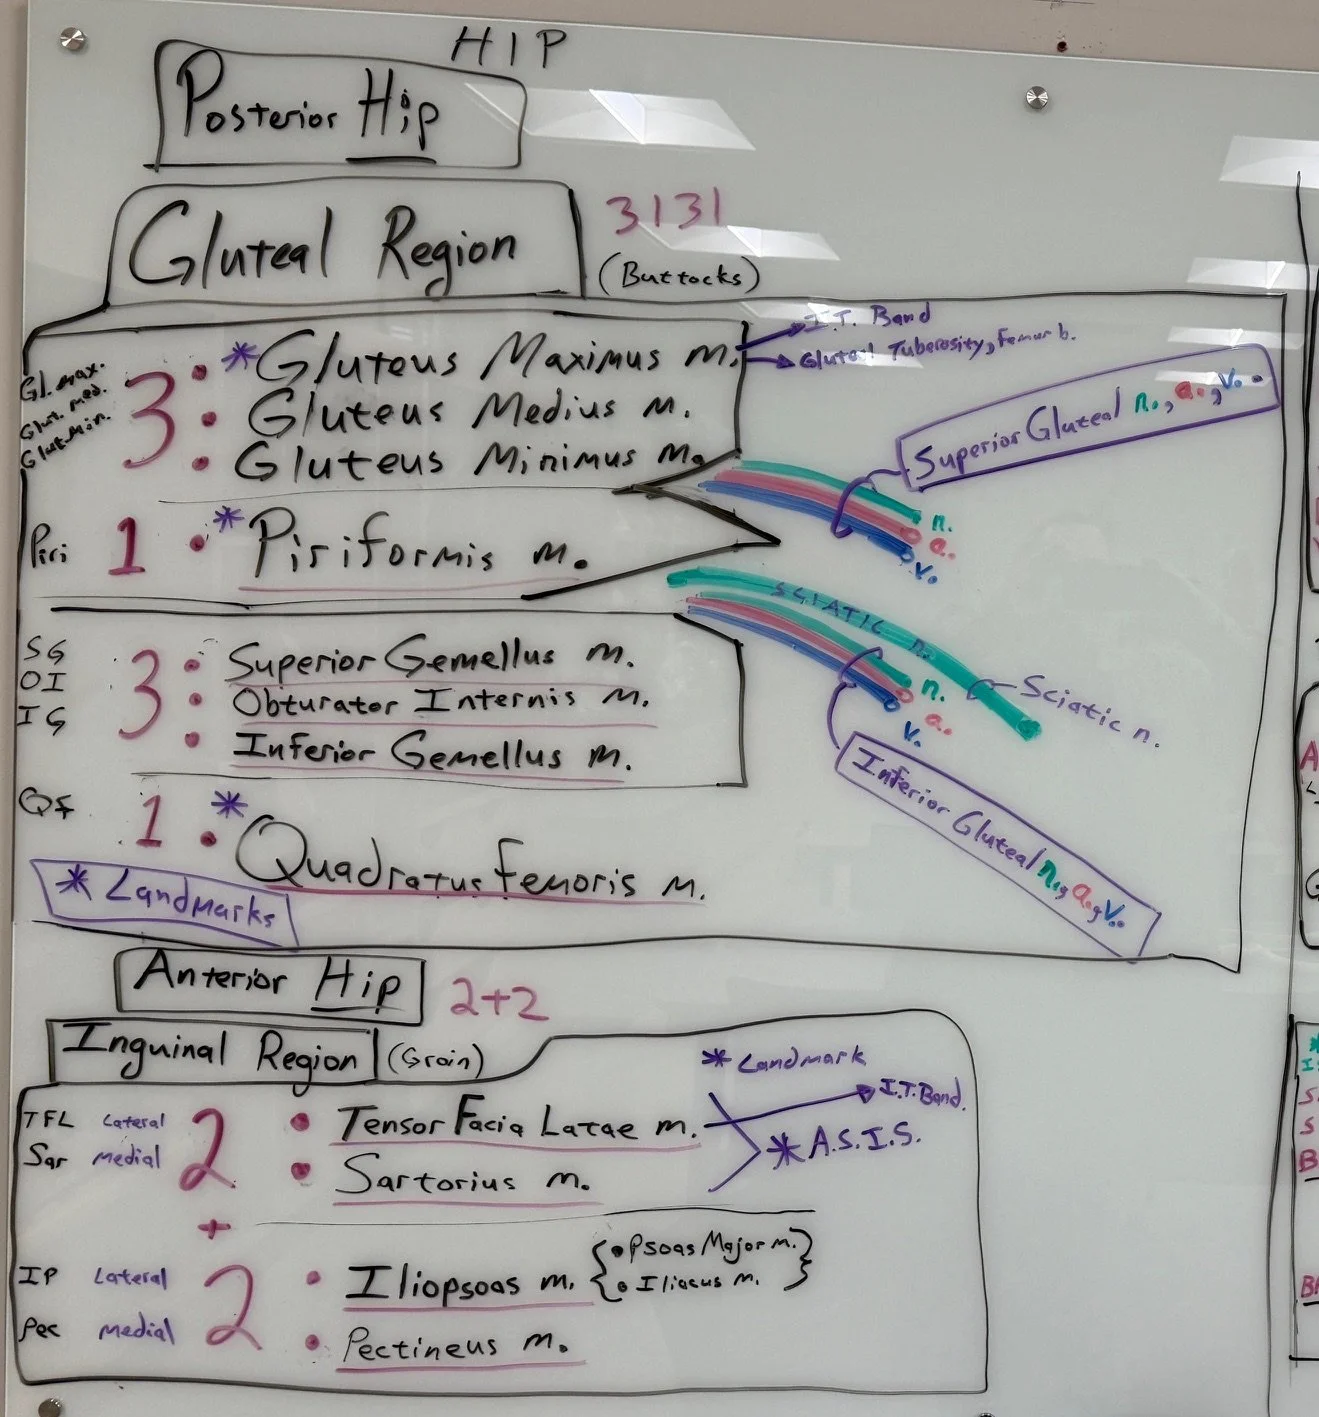 HIP
Posterior Hip
Gluteal Region
3131
(Buttocks)
Gl. max.
Glut. med.
Glut. Min.
3
* Gluteus Maximus m.
I.T. Band
Gluteal Tuberosity, Femur b.
Gluteus Medius m.
Gluteus Minimus m.
Superior Gluteal n., a., v.
n.
a.
v.
Piri 1 * Piriformis m.
SCIATIC n.
Sciatic n.
n.
a.
v.
Inferior Gluteal n., a., v.
SG
OI
IG
3
Superior Gemellus m.
Obturator Internis m.
Inferior Gemellus m.
QF 1 * Quadratus Femoris m.
* Landmarks
Anterior Hip
2+2
Inguinal Region (Groin)
* Landmark
TFL Lateral
Sar medial
2
Tensor Facia Latae m.
I.T. Band.
Sartorius m.
* A.S.I.S.
+
IP Lateral
Pec medial
2
Iliopsoas m. { • Psoas Major m. • Iliacus m. }
Pectineus m.